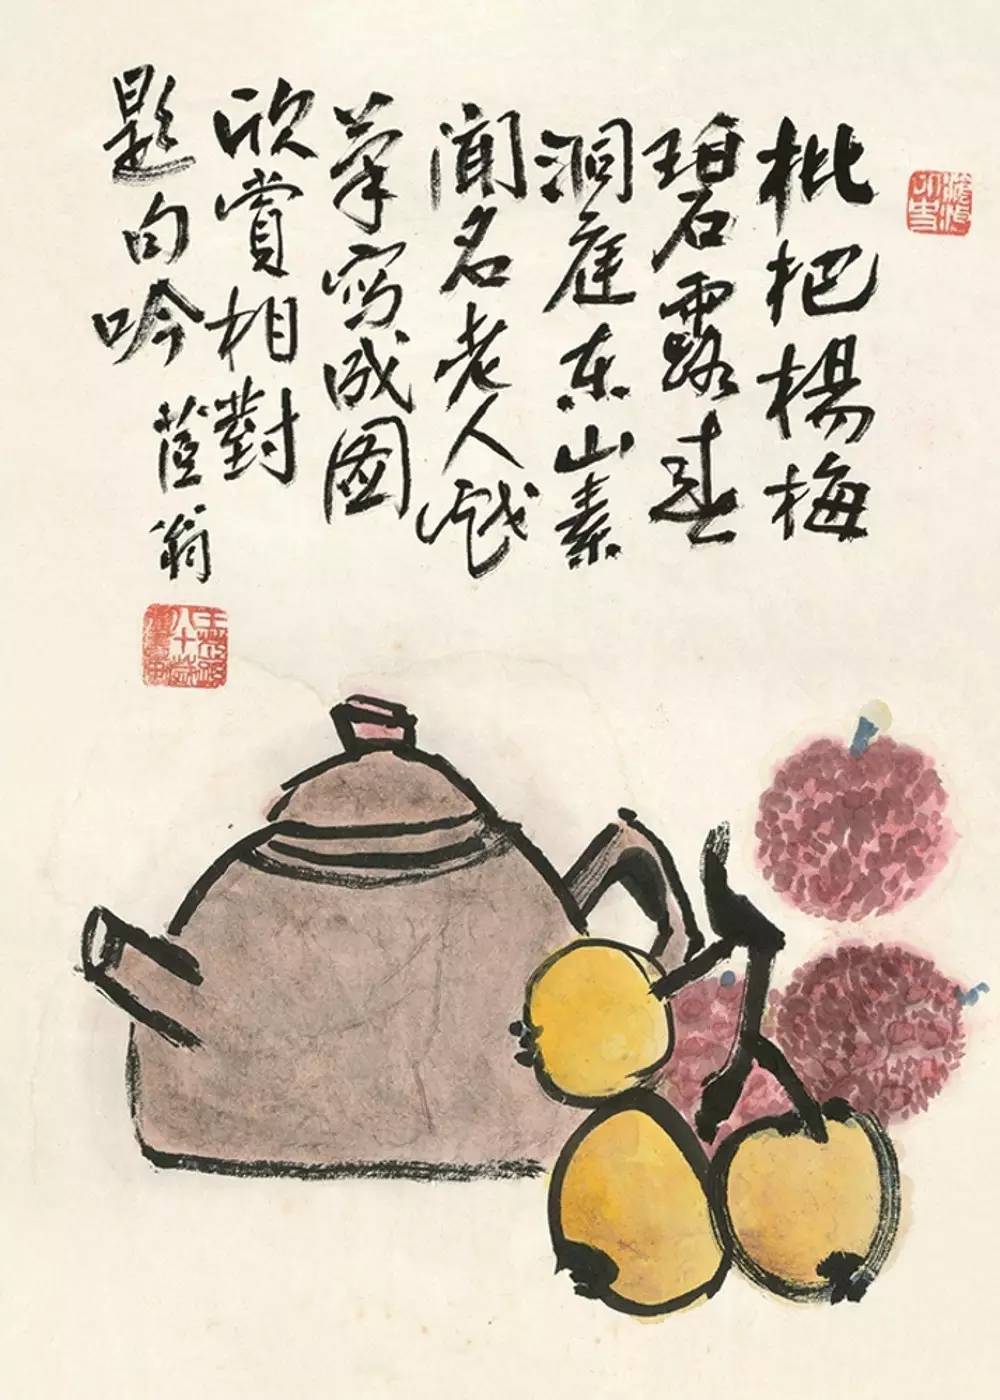 枇杷楊梅
碧露春
洞庭东山素
聞名老人戏
筆寫成图
欣賞相對
題句吟
翁
八十歲